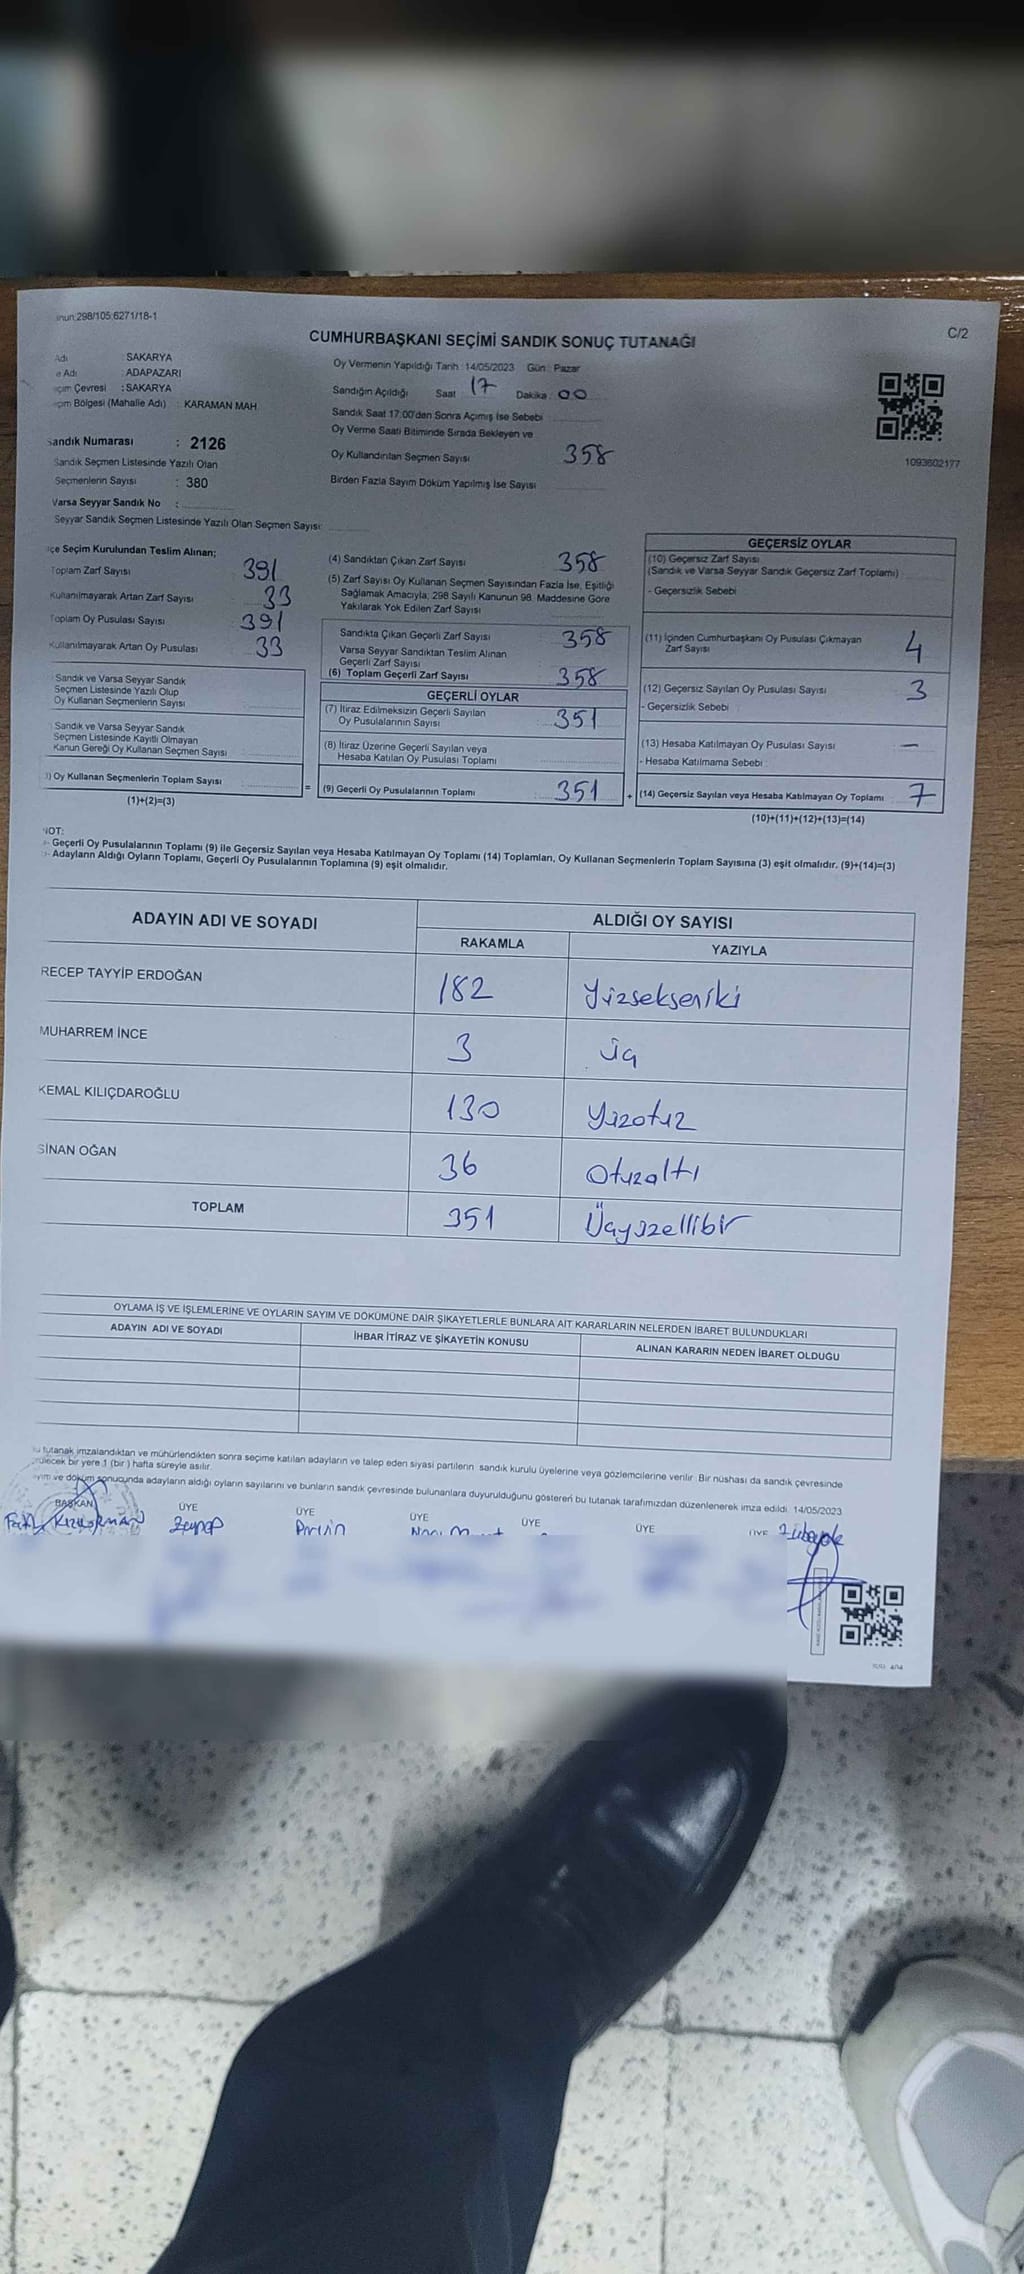 inun:298/105:6271/18-1
C/2
CUMHURBAŞKANI SEÇİMİ SANDIK SONUÇ TUTANAĞI
Adı : SAKARYA
e Adı : ADAPAZARI
eçim Çevresi : SAKARYA
eçim Bölgesi (Mahalle Adı) : KARAMAN MAH.
Oy Vermenin Yapıldığı Tarih : 14/05/2023 Gün : Pazar
Sandığın Açıldığı Saat : 17 Dakika : 00
Sandık Saat 17:00'den Sonra Açımış İse Sebebi :
Oy Verme Saati Bitiminde Sırada Bekleyen ve
Oy Kullandırılan Seçmen Sayısı 358
Birden Fazla Sayım Döküm Yapılmış İse Sayısı
1093602177
Sandık Numarası : 2126
Sandık Seçmen Listesinde Yazılı Olan
Seçmenlerin Sayısı : 380
Varsa Seyyar Sandık No :
Seyyar Sandık Seçmen Listesinde Yazılı Olan Seçmen Sayısı:
çe Seçim Kurulundan Teslim Alınan;
Toplam Zarf Sayısı 391
Kullanılmayarak Artan Zarf Sayısı 33
Toplam Oy Pusulası Sayısı 391
Kullanılmayarak Artan Oy Pusulası 33
Sandık ve Varsa Seyyar Sandık
Seçmen Listesinde Yazılı Olup
Oy Kullanan Seçmenlerin Sayısı
Sandık ve Varsa Seyyar Sandık
Seçmen Listesinde Kayıtlı Olmayan
Kanun Gereği Oy Kullanan Seçmen Sayısı
) Oy Kullanan Seçmenlerin Toplam Sayısı
(1)+(2)=(3)
(4) Sandıktan Çıkan Zarf Sayısı 358
(5) Zarf Sayısı Oy Kullanan Seçmen Sayısından Fazla İse, Eşitliği
Sağlamak Amacıyla, 298 Sayılı Kanunun 98. Maddesine Göre
Yakılarak Yok Edilen Zarf Sayısı
Sandıkta Çıkan Geçerli Zarf Sayısı 358
Varsa Seyyar Sandıktan Teslim Alınan
Geçerli Zarf Sayısı
(6) Toplam Geçerli Zarf Sayısı 358
GEÇERLİ OYLAR
(7) İtiraz Edilmeksizin Geçerli Sayılan
Oy Pusulalarının Sayısı 351
(8) İtiraz Üzerine Geçerli Sayılan veya
Hesaba Katılan Oy Pusulası Toplamı
= (9) Geçerli Oy Pusulalarının Toplamı 351
GEÇERSİZ OYLAR
(10) Geçersiz Zarf Sayısı
(Sandık ve Varsa Seyyar Sandık Geçersiz Zarf Toplamı)
- Geçersizlik Sebebi
(11) İçinden Cumhurbaşkanı Oy Pusulası Çıkmayan
Zarf Sayısı 4
(12) Geçersiz Sayılan Oy Pusulası Sayısı 3
- Geçersizlik Sebebi :
(13) Hesaba Katılmayan Oy Pusulası Sayısı —
- Hesaba Katılmama Sebebi :
+ (14) Geçersiz Sayılan veya Hesaba Katılmayan Oy Toplamı 7
(10)+(11)+(12)+(13)=(14)
NOT:
- Geçerli Oy Pusulalarının Toplamı (9) ile Geçersiz Sayılan veya Hesaba Katılmayan Oy Toplamı (14) Toplamları, Oy Kullanan Seçmenlerin Toplam Sayısına (3) eşit olmalıdır. (9)+(14)=(3)
- Adayların Aldığı Oyların Toplamı, Geçerli Oy Pusulalarının Toplamına (9) eşit olmalıdır.
ADAYIN ADI VE SOYADI
ALDIĞI OY SAYISI
RAKAMLA YAZIYLA
RECEP TAYYİP ERDOĞAN 182 Yüzsekseniki
MUHARREM İNCE 3 üç
KEMAL KILIÇDAROĞLU 130 Yüzotuz
SİNAN OĞAN 36 Otuzaltı
TOPLAM 351 Üçyüzellibir
OYLAMA İŞ VE İŞLEMLERİNE VE OYLARIN SAYIM VE DÖKÜMÜNE DAİR ŞİKAYETLERLE BUNLARA AİT KARARLARIN NELERDEN İBARET BULUNDUKLARI
ADAYIN ADI VE SOYADI İHBAR İTİRAZ VE ŞİKAYETİN KONUSU ALINAN KARARIN NEDEN İBARET OLDUĞU
u tutanak imzalandıktan ve mühürlendikten sonra seçime katılan adayların ve talep eden siyasi partilerin sandık kurulu üyelerine veya gözlemcilerine verilir. Bir nüshası da sandık çevresinde
rülecek bir yere 1 (bir) hafta süreyle asılır.
ayım ve döküm sonucunda adayların aldığı oyların sayılarını ve bunların sandık çevresinde bulunanlara duyurulduğunu gösteren bu tutanak tarafımızdan düzenlenerek imza edildi. 14/05/2023
BAŞKAN ÜYE ÜYE ÜYE ÜYE ÜYE ÜYE
Zeynep